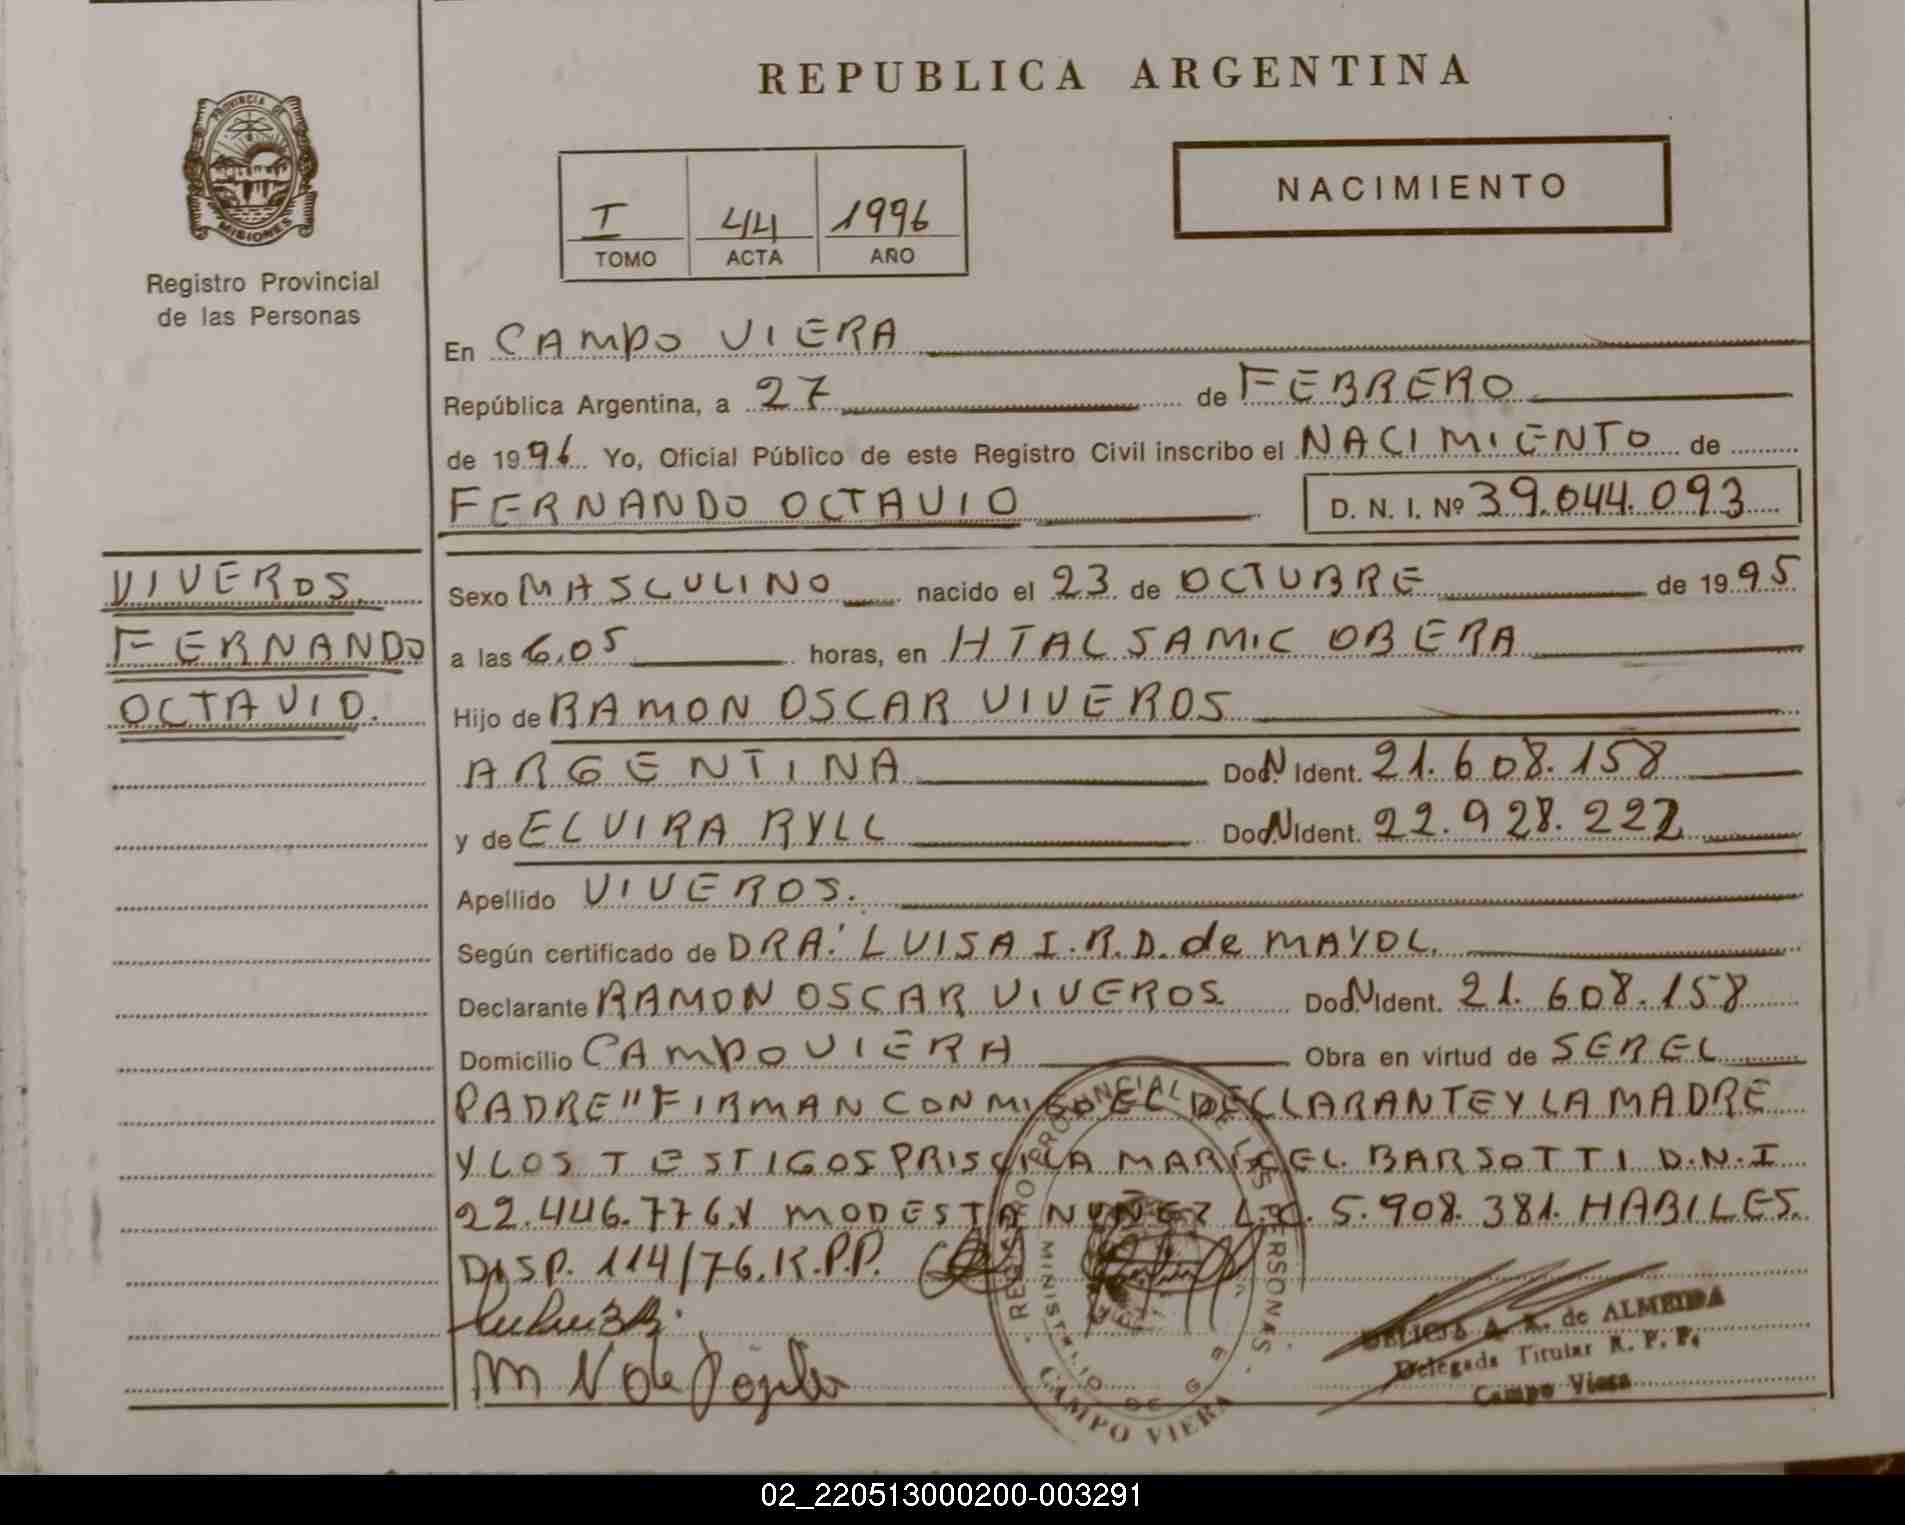 REPUBLICA ARGENTINA
PROVINCIA DE
MISIONES
Registro Provincial
de las Personas
NACIMIENTO
I 44 1996
TOMO ACTA AÑO
En CAMPO VIERA
República Argentina, a 27 de FEBRERO
de 1996 Yo, Oficial Público de este Registro Civil inscribo el NACIMIENTO de
FERNANDO OCTAVIO D. N. I. Nº 39.044.093
VIVEROS.
FERNANDO
OCTAVIO.
Sexo MASCULINO nacido el 23 de OCTUBRE de 1995
a las 6,05 horas, en HTAL SAMIC OBERA
Hijo de RAMON OSCAR VIVEROS
ARGENTINA DocN Ident. 21.608.158
y de ELVIRA RYLL DocN Ident. 22.928.222
Apellido VIVEROS.
Según certificado de DRA: LUISA I. R. D. de MAYOL.
Declarante RAMON OSCAR VIVEROS DocN Ident. 21.608.158
Domicilio CAMPO VIERA Obra en virtud de SER EL
PADRE" FIRMAN CONMIGO EL DECLARANTE Y LA MADRE
Y LOS TESTIGOS PRISCILA MARISEL BARSOTTI D.N.I
22.446.776.Y MODESTA NUÑEZ L.C. 5.908.381. HABILES.
DISP. 114/76.R.P.P.
REGISTRO PROVINCIAL DE LAS PERSONAS
MINISTERIO DE G
CAMPO VIERA
DELICIA A. R. de ALMEIDA
Delegada Titular R. P. P.
Campo Viera
M N de
02_220513000200-003291